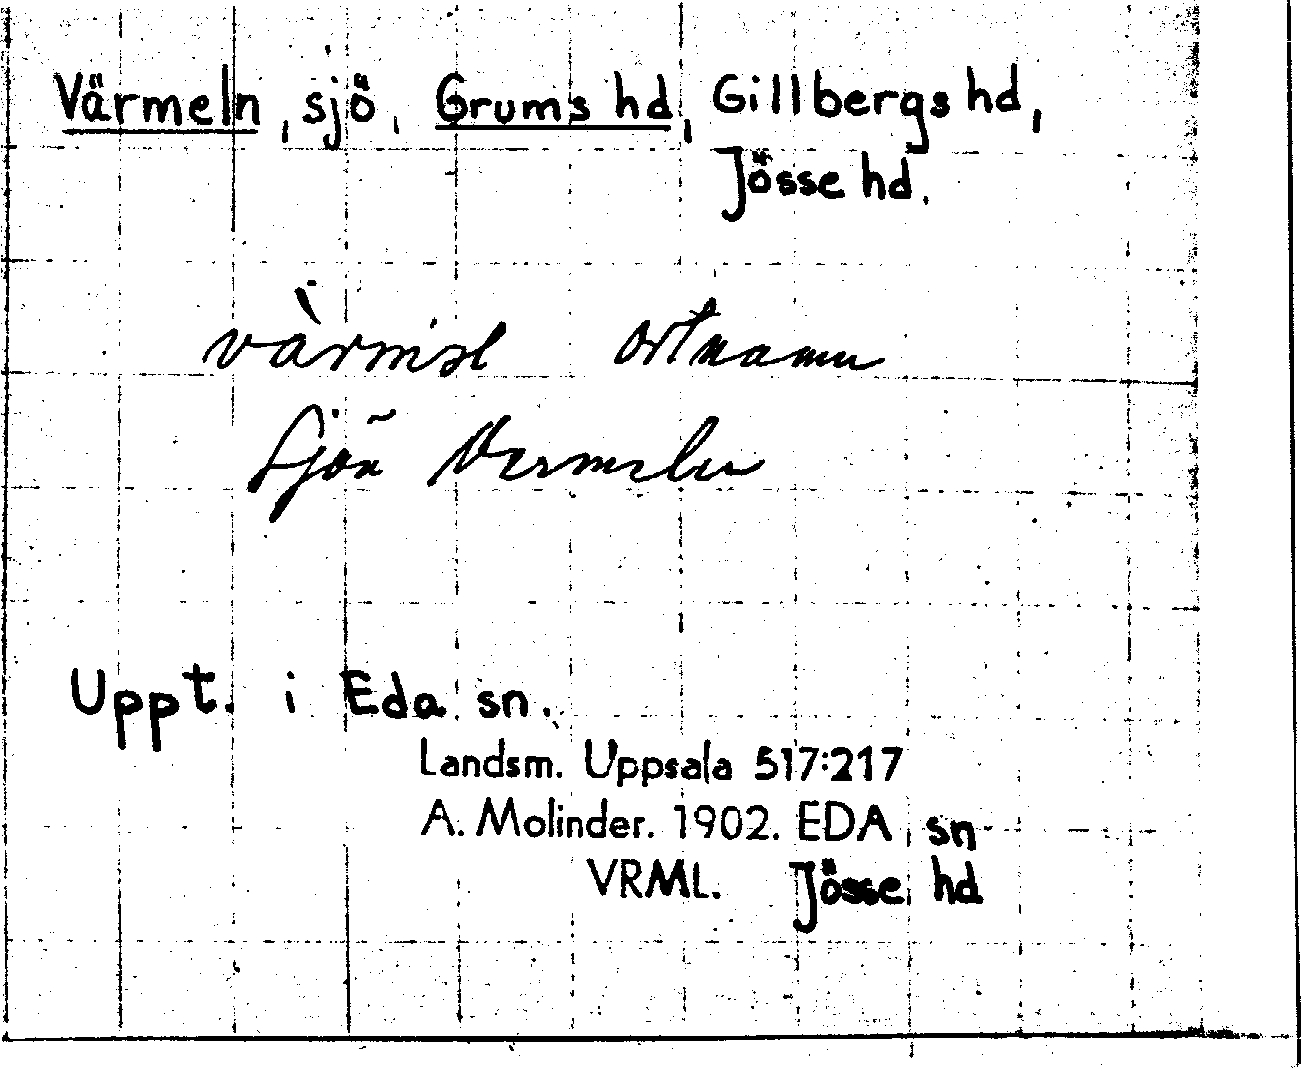 Värmeln, sjö, Grums hd, Gillbergs hd,
Jösse hd.
ortnamn
Sjön Vermeln
Uppt. i Eda sn.
Landsm. Uppsala 517:217
A. Molinder. 1902. EDA sn
VRML. Jösse hd